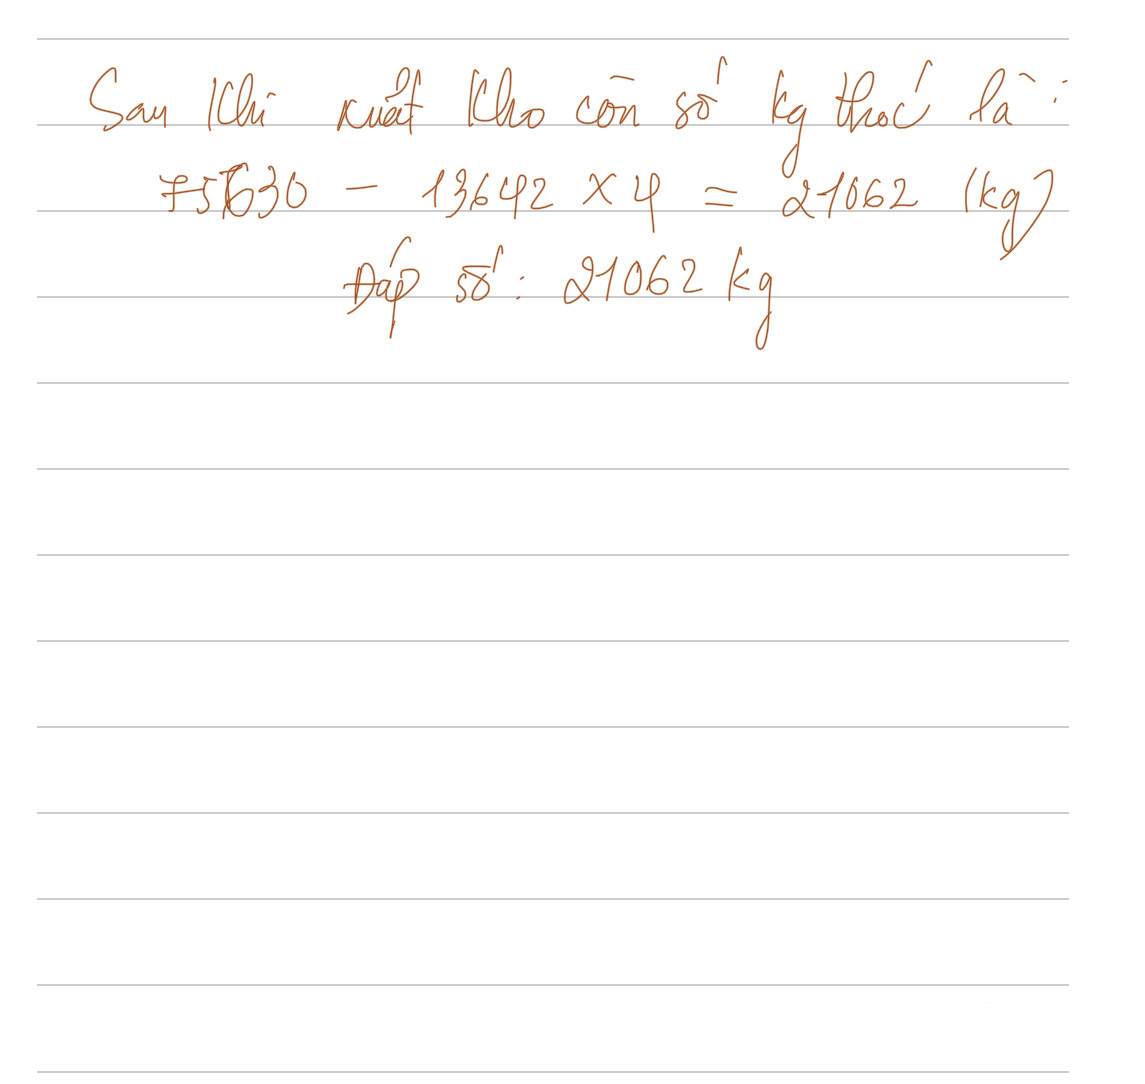 Sau khi xuất kho còn số kg thóc là:
75630 - 13642 x 4 = 21062 (kg)
Đáp số: 21062 kg